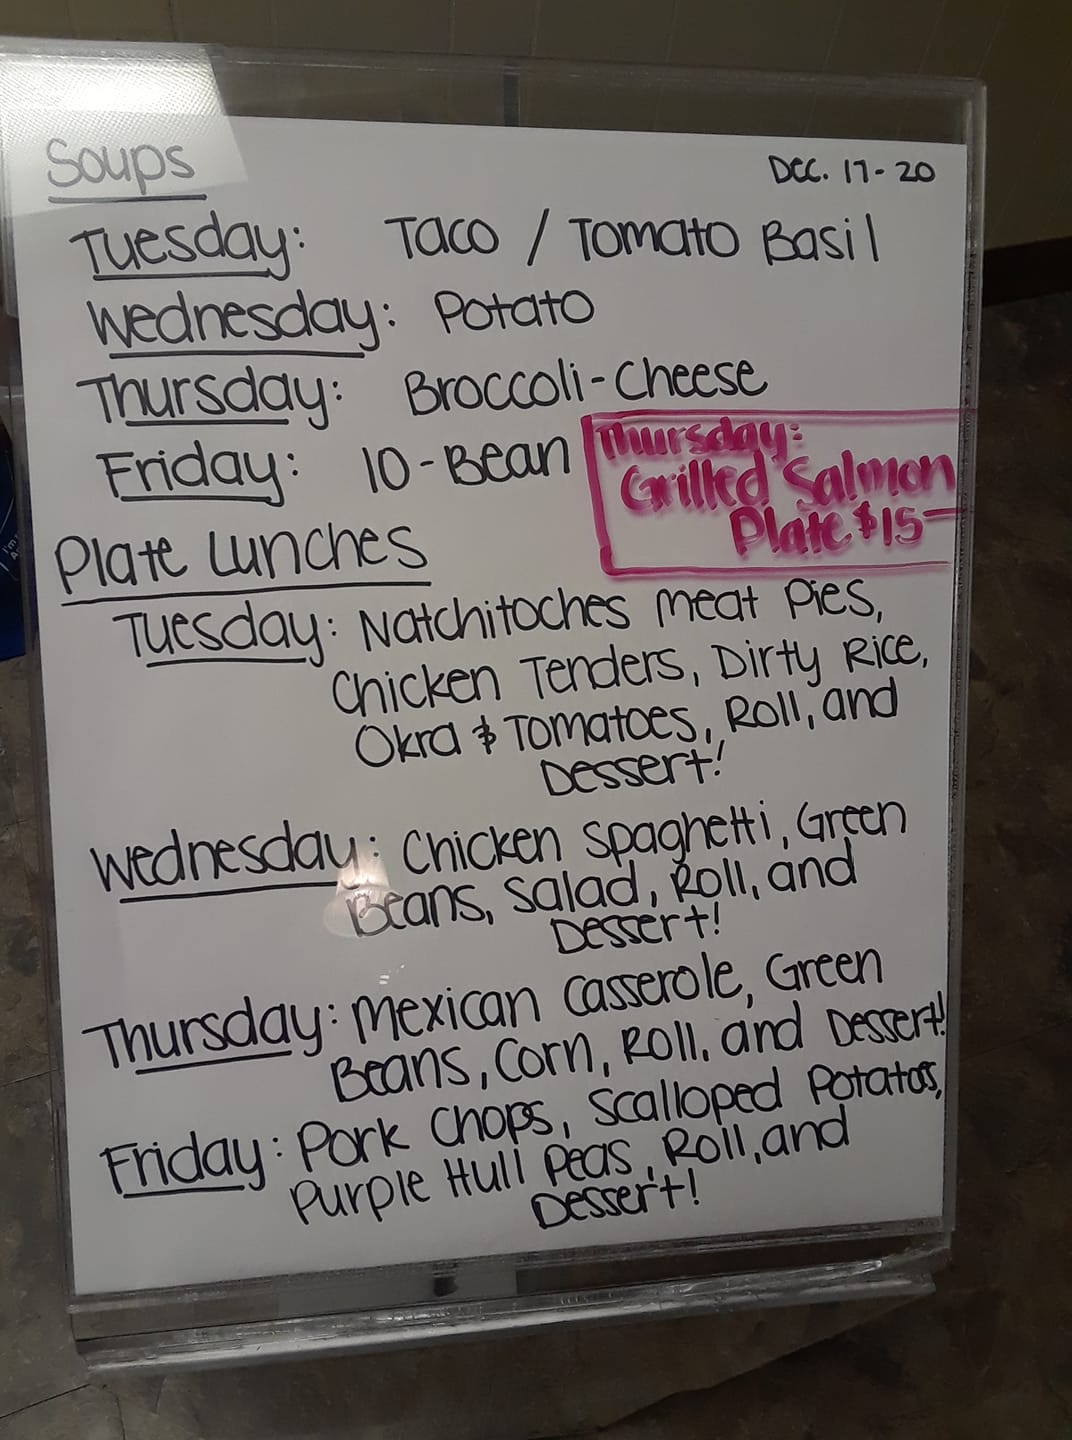 Soups
Dec. 17-20
Tuesday: Taco / Tomato Basil
Wednesday: Potato
Thursday: Broccoli-Cheese
Friday: 10-Bean
Thursday:
Grilled Salmon
Plate $15
Plate Lunches
Tuesday: Natchitoches Meat Pies,
Chicken Tenders, Dirty Rice,
Okra & Tomatoes, Roll, and
Dessert!
Wednesday: Chicken Spaghetti, Green
Beans, Salad, Roll, and
Dessert!
Thursday: Mexican Casserole, Green
Beans, Corn, Roll, and Dessert!
Friday: Pork Chops, Scalloped Potatoes,
Purple Hull Peas, Roll, and
Dessert!